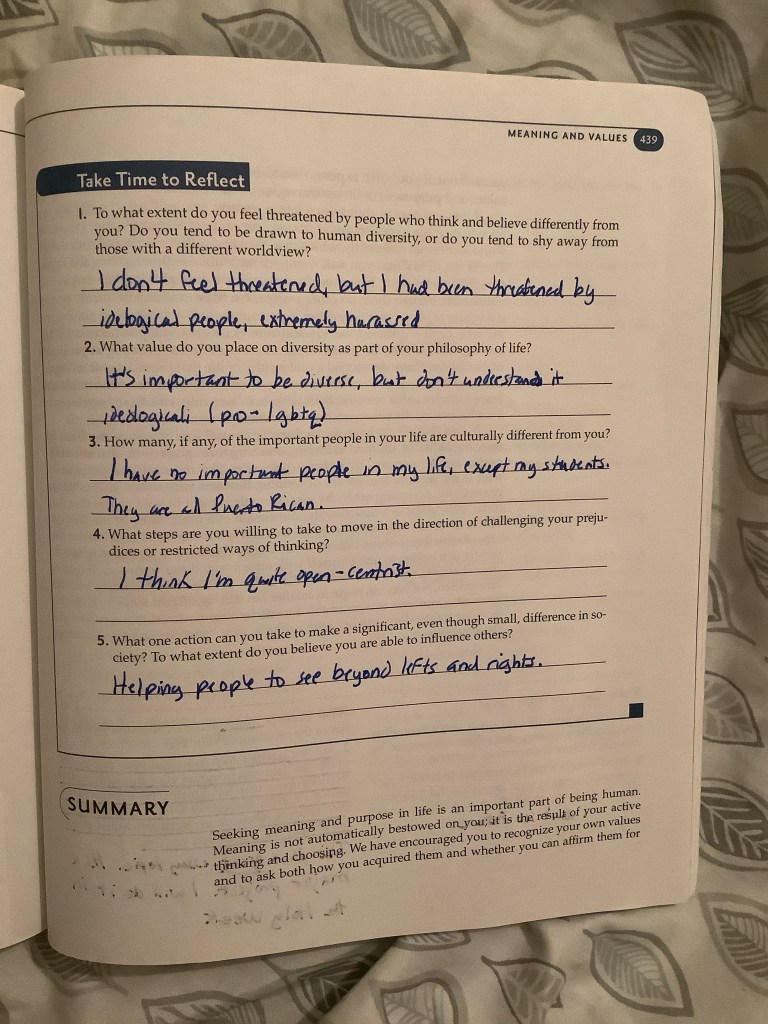 MEANING AND VALUES 439
Take Time to Reflect
1. To what extent do you feel threatened by people who think and believe differently from
you? Do you tend to be drawn to human diversity, or do you tend to shy away from
those with a different worldview?
I don't feel threatened, but I had been threatened by
idelogical people, extremely harassed
2. What value do you place on diversity as part of your philosophy of life?
It's important to be diverse, but don't understand it
ideologicali (pro-lgbtq)
3. How many, if any, of the important people in your life are culturally different from you?
I have no important people in my life, except my students.
They are all Puerto Rican.
4. What steps are you willing to take to move in the direction of challenging your preju-
dices or restricted ways of thinking?
I think I'm quite open-centrist.
5. What one action can you take to make a significant, even though small, difference in so-
ciety? To what extent do you believe you are able to influence others?
Helping people to see beyond lefts and rights.
SUMMARY
Seeking meaning and purpose in life is an important part of being human.
Meaning is not automatically bestowed on you; it is the result of your active
thinking and choosing. We have encouraged you to recognize your own values
and to ask both how you acquired them and whether you can affirm them for